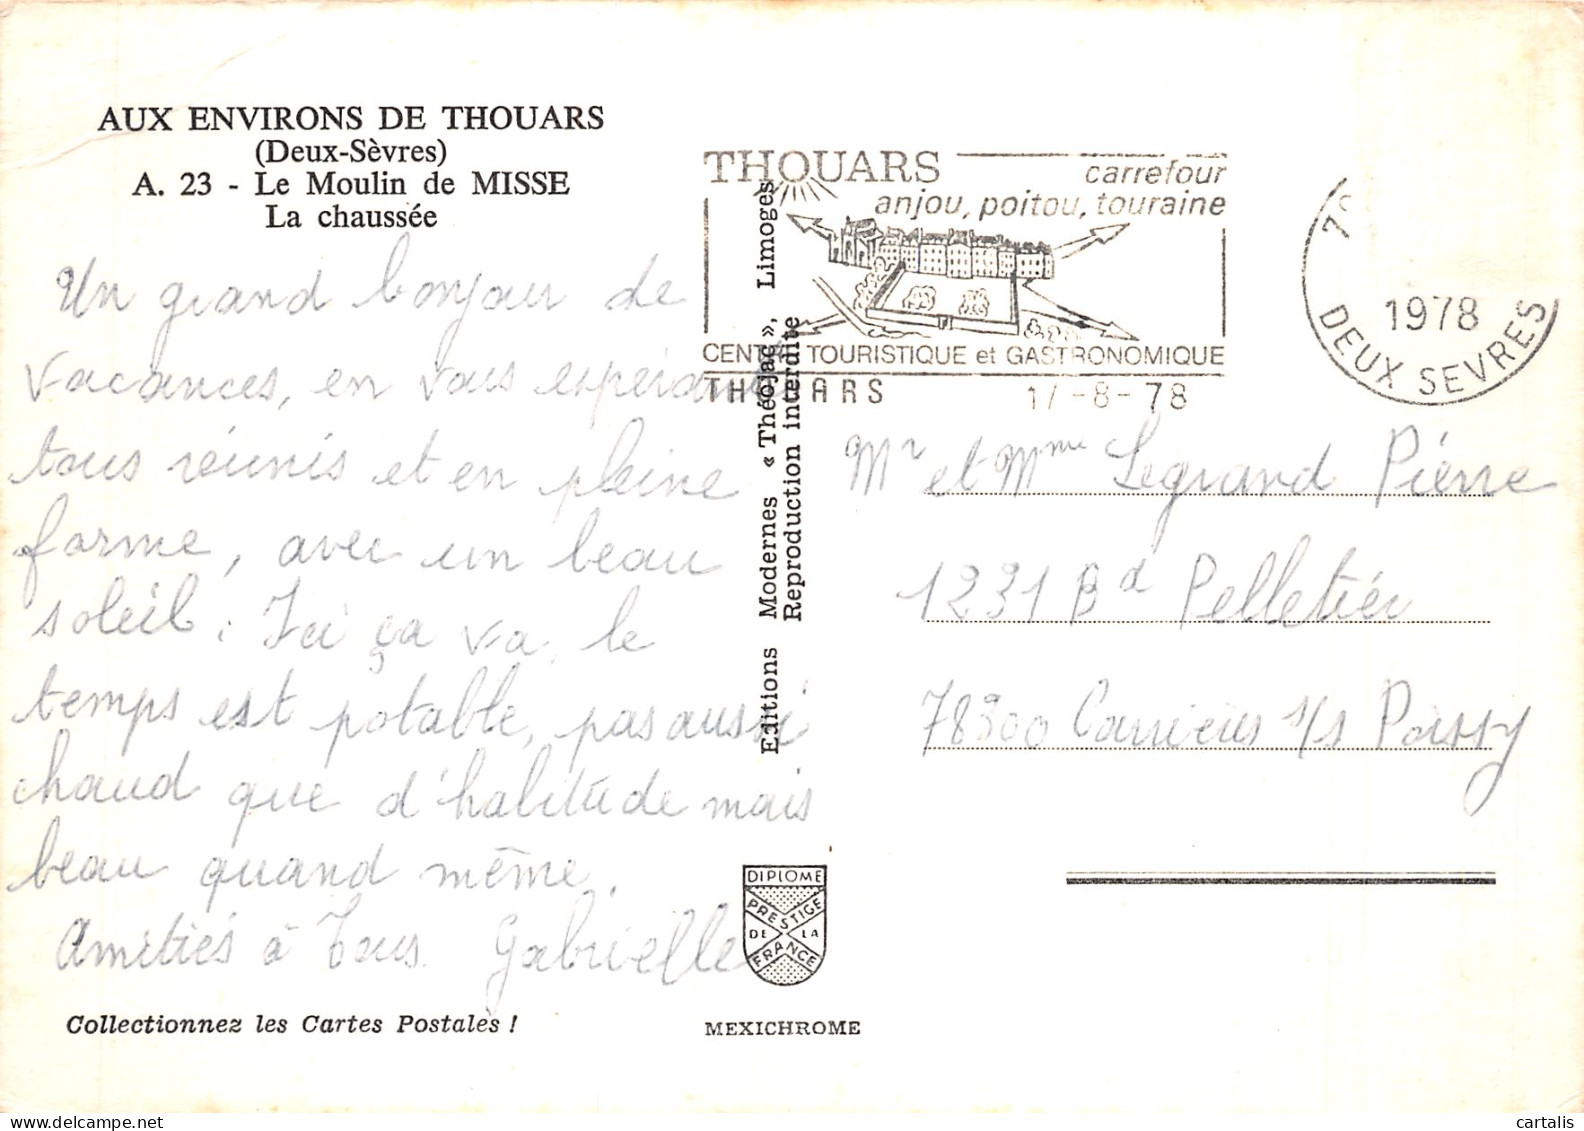 AUX ENVIRONS DE THOUARS
(Deux-Sèvres)
A. 23 - Le Moulin de MISSE
La chaussée
Un grand bonjour de
vacances, en vous espérant
tous réunis et en pleine
forme, avec un beau
soleil. Ici ça va, le
temps est potable, pas aussi
chaud que d'habitude mais
beau quand même.
Amitiés à Tous. Gabrielle
Collectionnez les Cartes Postales !
Editions Modernes « Théojac », Limoges
Reproduction interdite
DIPLOME
PRESTIGE
DE LA
FRANCE
MEXICHROME
THOUARS
carrefour
anjou, poitou, touraine
CENTRE TOURISTIQUE et GASTRONOMIQUE
THOUARS 17-8-78
1978
DEUX SEVRES
Mr et Mme Legrand Pierre
1231 Bd Pelletier
78300 Carrières s/s Poissy
cartalis